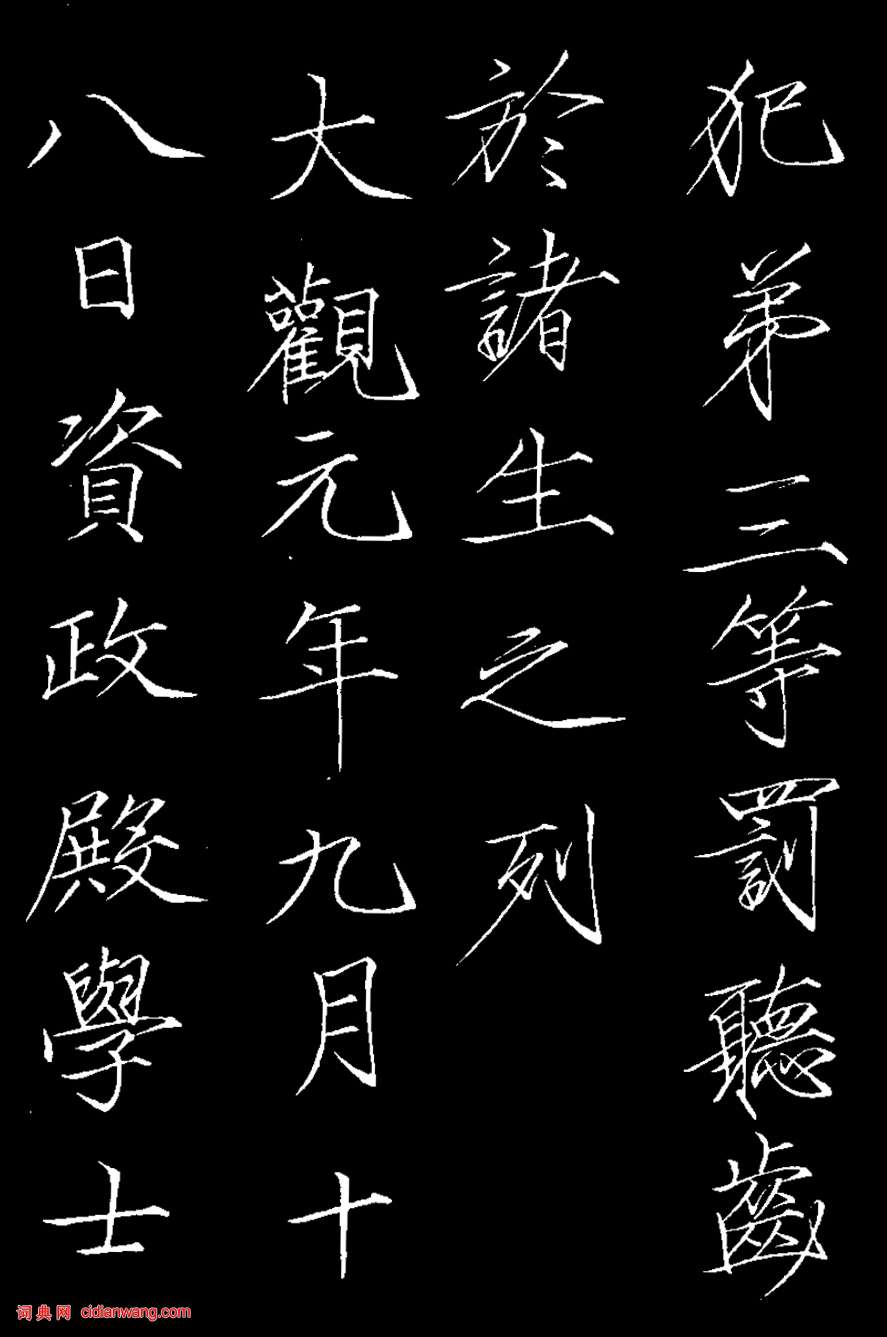 犯弟三等罰聽齒
於諸生之列
大觀元年九月十
八日資政殿學士
词典网 cidianwang.com